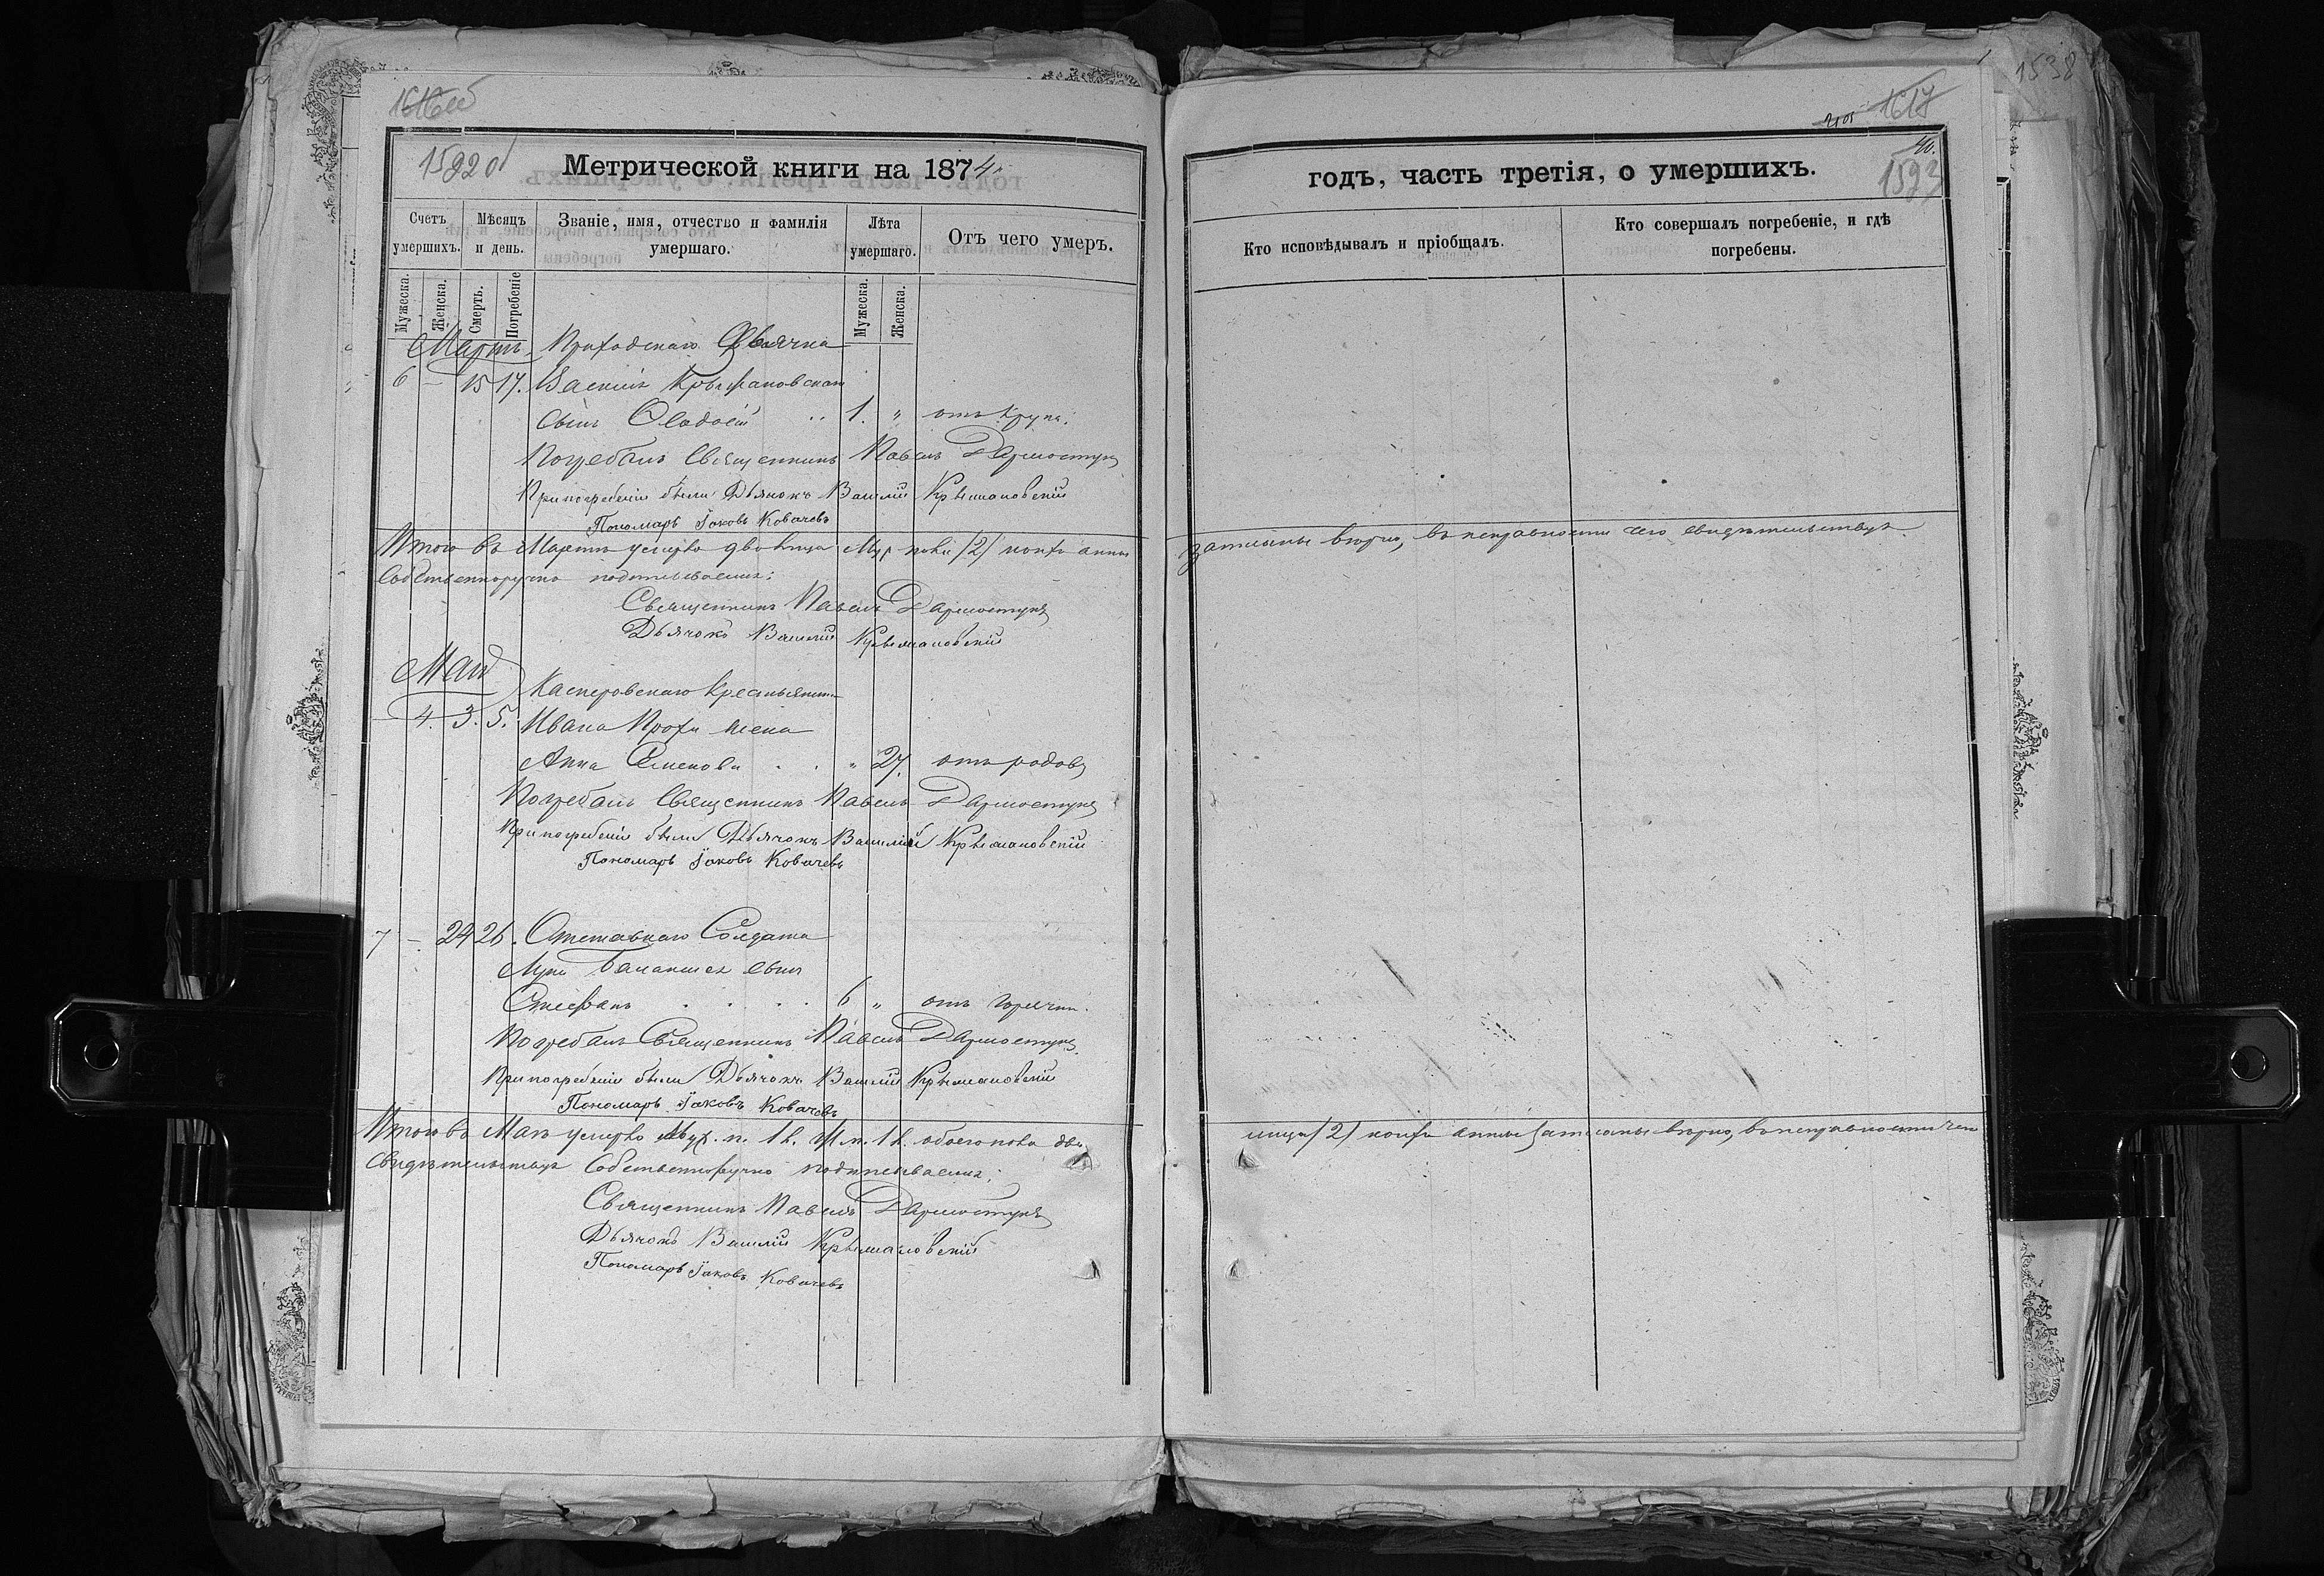 1616об
15920б
Метрической книги на 1874
Счетъ умершихъ.
Мѣсяцъ и день.
Званіе, имя, отчество и фамилія умершаго.
Лѣта умершаго.
Отъ чего умеръ.
Мужеска.
Женска.
Смерть.
Погребеніе
Мужеска.
Женска.
Мартъ Приходскаго Дьячка
6 – 15 17. Василія Крыжановскаго
сынъ 1. " отъ крупа.
Погребалъ Священникъ Павелъ
При погребеніи были Дьячокъ Василій Крыжановскій
Пономарь Іаковъ Ковачевъ
Итого въ Мартѣ умерло два лица Муж. пола /2/ коихъ
Собственноручно подписываемъ:
Священникъ Павелъ
Дьячокъ Василій Крыжановскій
Май
Касперовскаго крестьянина
– 4. 3. 5. Ивана жена
Анна Семенова . . " 27. отъ родовъ
Погребалъ Священникъ Павелъ
При погребеніи были Дьячокъ Василій Крыжановскій
Пономарь Іаковъ Ковачевъ
7 – 24 26. Отставнаго Солдата
Луки сынъ
Стефанъ . . . . 6 " отъ горячки.
Погребалъ Священникъ Павелъ
При погребеніи были Дьячокъ Василій Крыжановскій
Пономарь Іаковъ Ковачевъ
Итого въ Маѣ умерло Муж. п. 1 л. Ж. п. 1 л. обоего пола два
свидѣтельствуя Собственноручно подписываемъ:
Священникъ Павелъ
Дьячокъ Василій Крыжановскій
Пономарь Іаковъ Ковачевъ
1538
1617
40.
1593
годъ, часть третія, о умершихъ.
Кто исповѣдывалъ и пріобщалъ.
Кто совершалъ погребеніе, и гдѣ погребены.
записаны вѣрно, въ исправности чего свидѣтельствуя
лица /2/ коихъ записаны вѣрно, въ исправности чего